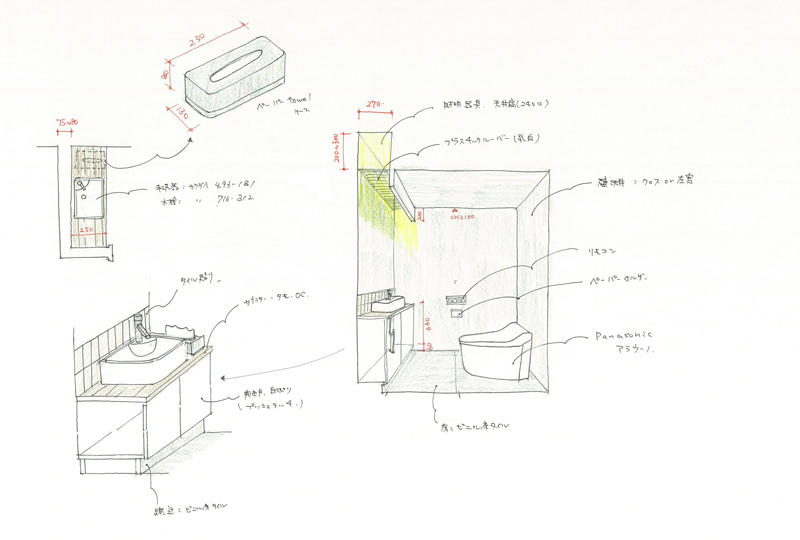 250
80
130
ペーパー towel
ケース
75~80
手洗器：カクダイ 493-181
水栓： 〃 716-312
250
タイル貼り
カウンター：タモ. OC.
(プッシュラッチ.)
踏込：ビニル床タイル
270
200~300
照明器具. 天井高(2400)
プラスチックルーバー(乳白)
CH2100
壁天井：クロス or 左官
リモコン
ペーパーホルダー
Panasonic
アラウーノ.
床：ビニル床タイル